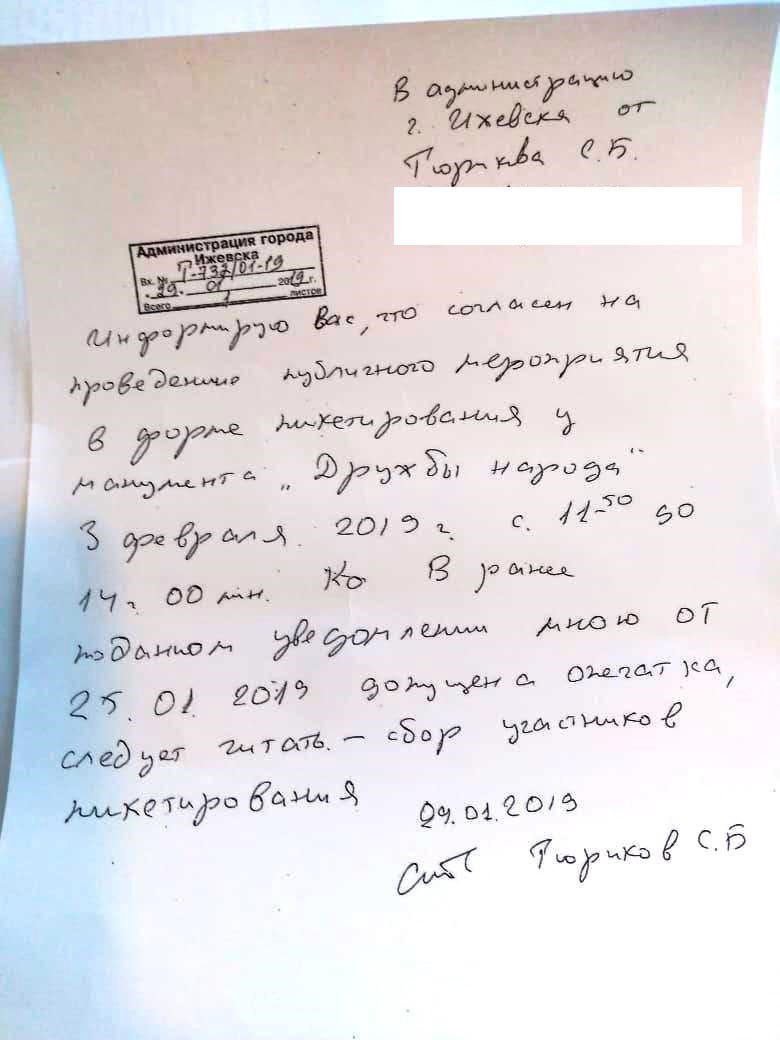 В администрацию
г. Ижевска от
Тюрикова С.Б.
Администрация города
Ижевска
Вх. № Т-732/01-19
"29" 01 2019 г.
Всего 1 листов
Информирую Вас, что согласен на
проведению публичного мероприятия
в форме пикетирования у
манумента „Дружбы народа"
3 февраля 2019 г. с. 11-50 до
14 г. 00 мин. В ранее
поданном уведомлении мною от
25. 01. 2019 допущена опечатка,
следует читать. – сбор участников
пикетирования
29.01.2019
Тюриков С.Б